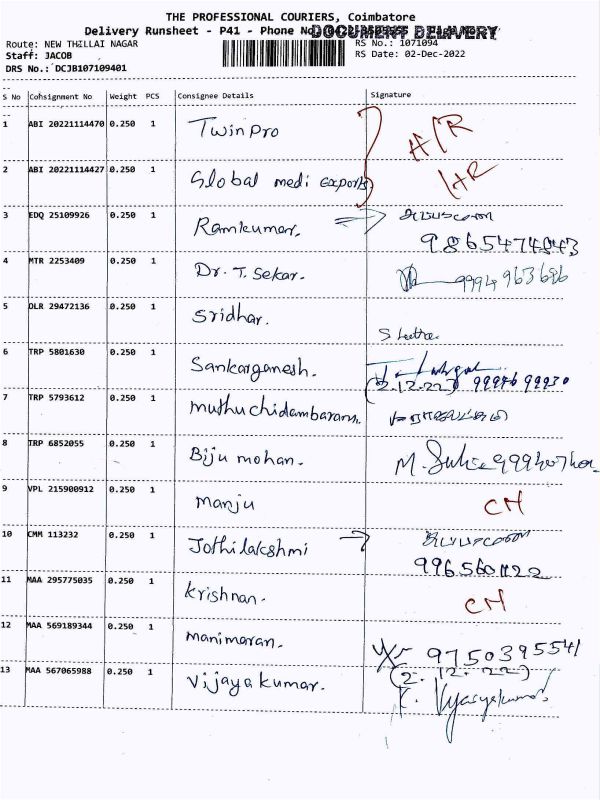 THE PROFESSIONAL COURIERS, Coimbatore
Delivery Runsheet - P41 - Phone No
DOCUMENT DELIVERY
Route: NEW THILLAI NAGAR
RS No.: 1071094
Staff: JACOB
RS Date: 02-Dec-2022
DRS No.: DCJB107109401
S No Consignment No Weight PCS Consignee Details Signature
1 ABI 20221114470 0.250 1 Twin Pro H/R
2 ABI 20221114427 0.250 1 Global medi exports HR
3 EDQ 25109926 0.250 1 Ramkumar.
4 MTR 2253409 0.250 1 Dr. T. Sekar. 9994963686
5 OLR 29472136 0.250 1 Sridhar.
6 TRP 5801630 0.250 1 Sankarganesh.
(2.12.22)
7 TRP 5793612 0.250 1 muthuchidambaram.
8 TRP 6852055 0.250 1 Biju mohan.
9 VPL 215900912 0.250 1 manju CH
10 CMM 113232 0.250 1 Jothilakshmi
11 MAA 295775035 0.250 1 krishnan. CH
12 MAA 569189344 0.250 1 manimaran. 9750395541
(2.12.22)
13 MAA 567065988 0.250 1 Vijayakumar.